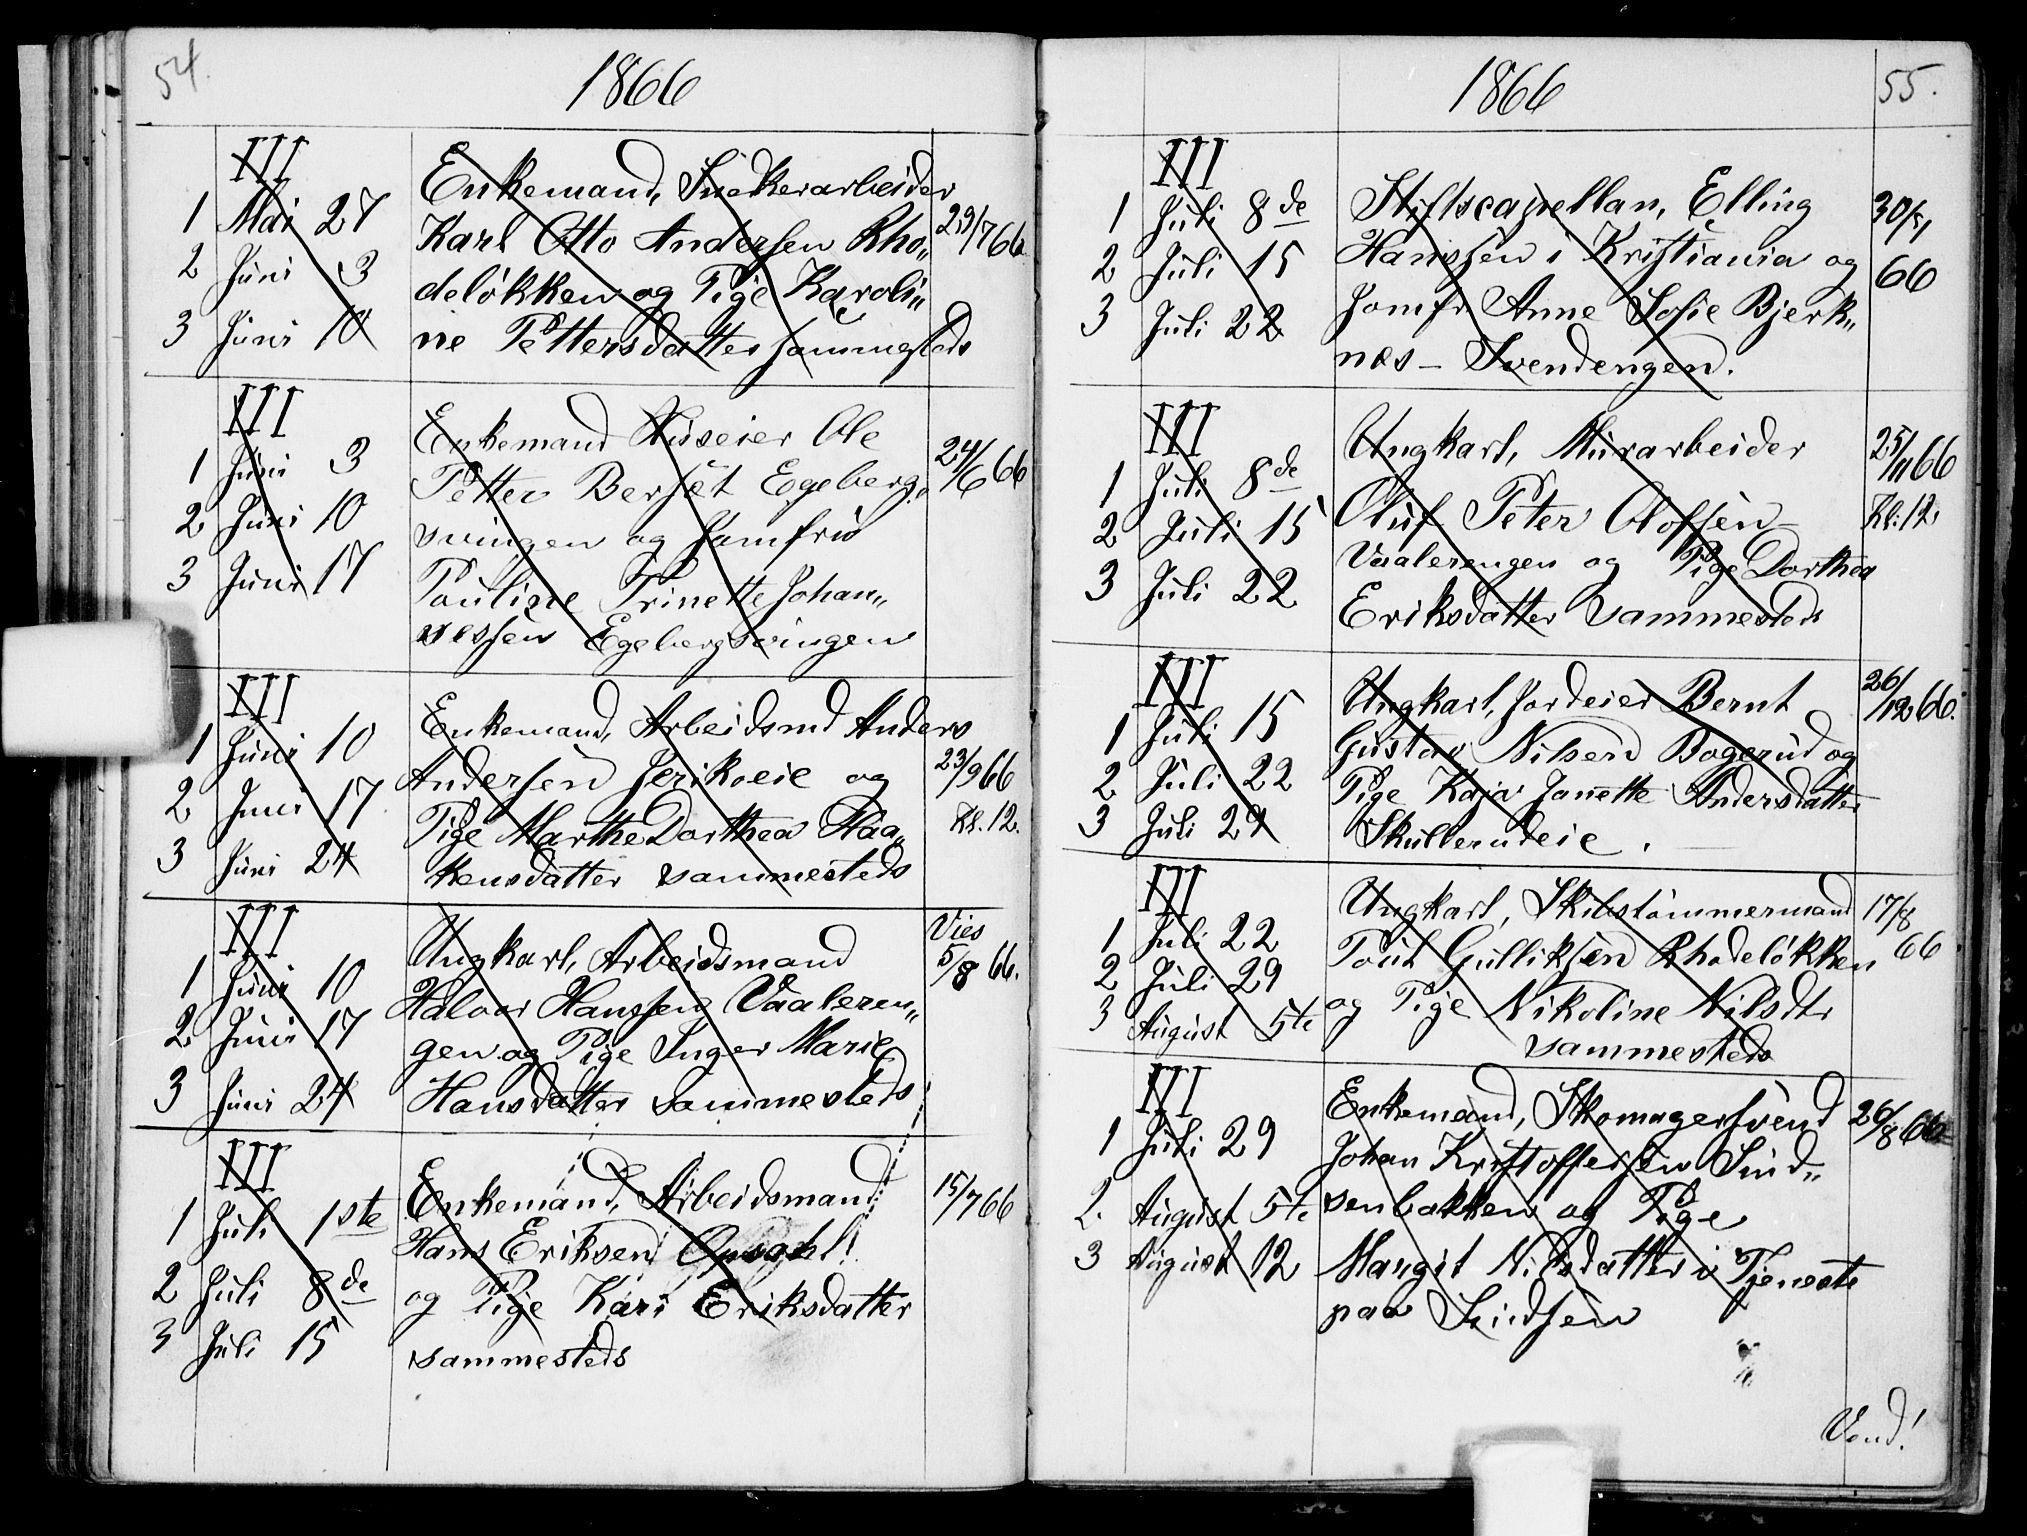 54.
1866
III
1 Mai 27
2 Juni 3
3 Juni 10
Enkemand, Snedkerarbeider
Karl Otto Andersen Rho„
deløkken og Pige Karoli„
ne Pettersdatter sammesteds
29/7 66
III
1 Juni 3
2 Juni 10
3 Juni 17
Enkemand Huseier Ole
Petter Berset Egebergs
svingen og Jomfru
Pauline Trinette Johan„
nessen Egebergsvingen
24/6 66
III
1 Juni 10
2 Juni 17
3 Juni 24
Enkemand, Arbeidsmd Anders
Andersen Jerikoeie og
Pige Marthe Dorthea Haa„
kensdatter sammesteds
23/9 66
Kl. 12.
III
1 Juni 10
2 Juni 17
3 Juni 24
Ungkarl, Arbeidsmand
Halvor Hanssen Vaaleren„
gen og Pige Inger Marie
Hansdatter sammesteds
Vies
5/8 66.
III
1 Juli 1ste
2 Juli 8de
3 Juli 15
Enkemand, Arbeidsmand
Hans Eriksen Opsahl
og Pige Kari Eriksdatter
sammesteds
15/7 66
55.
1866
III
1 Juli 8de
2 Juli 15
3 Juli 22
Stiftscapellan, Elling
Hanssen i Kristiania og
Jomfr Anne Sofie Bjerk„
næs – Svendengen.
66
III
1 Juli 8de
2 Juli 15
3 Juli 22
Ungkarl, Murarbeider
Oluf Peter Olofsen
Vaalerengen og Pige Dorthea
Eriksdatter sammesteds
25/11 66
Kl. 12.
III
1 Juli 15
2 Juli 22
3 Juli 29
Ungkarl, Jordeier Bernt
Gustav Nilsen Bogerud og
Pige Kaja Janette Andersdatter
Skullerudeie.
26/12 66.
III
1 Juli 22
2 Juli 29
3 August 5te
Ungkarl, Skibstømmermand
Poul Gulliksen Rhodeløkken
og Pige Nikoline Nilsdtr
sammesteds
17/8
66
III
1 Juli 29
2. August 5te
3 August 12
Enkemand, Skomagersvend
Johan Kristoffersen Sind„
senbakken og Pige
Margit Nilsdatter i Tjeneste
paa Sindsen
26/8 66
Vend!